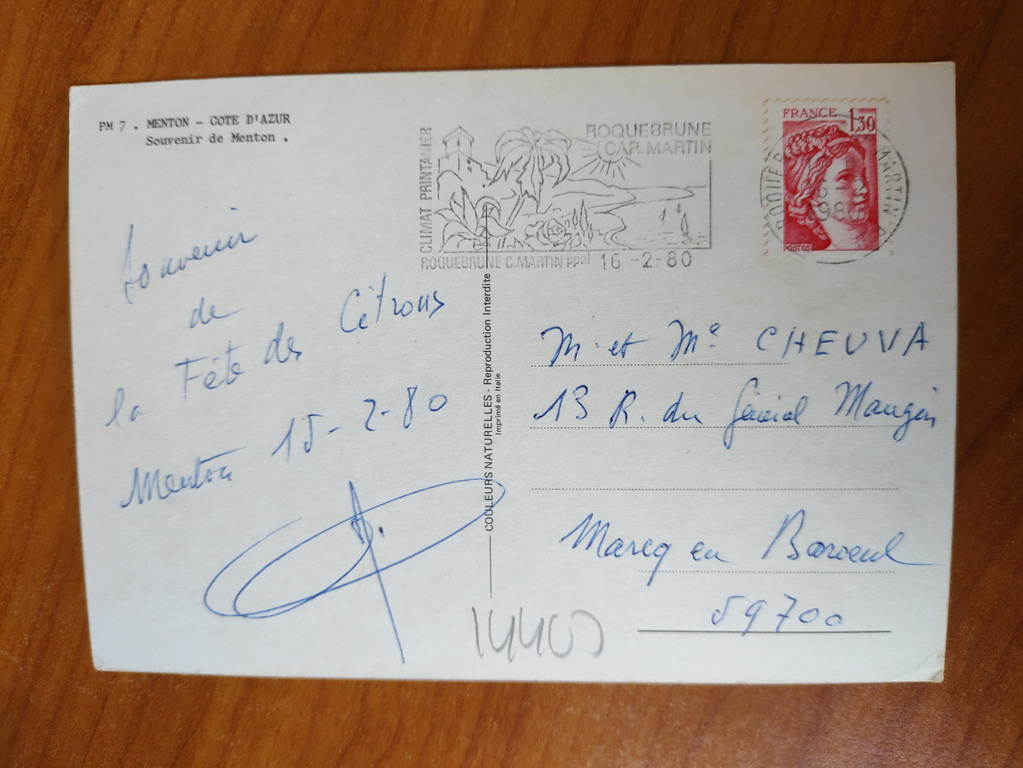 PM 7 . MENTON - COTE D'AZUR
Souvenir de Menton .
Souvenir
de
la Fête des Citrons
Menton 15-2-80
CLIMAT PRINTANIER
ROQUEBRUNE
CAP MARTIN
ROQUEBRUNE C.MARTIN PPal 16 -2-80
FRANCE 1,30
POSTES
COULEURS NATURELLES - Reproduction Interdite
Imprimé en Italie
M. et Me CHEUVA
13 R. du Général Mangin
Marcq en Baroeul
59700